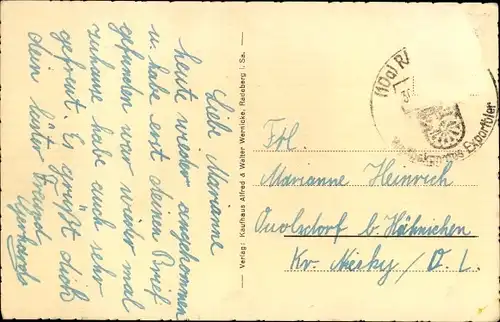 Liebe Marianne
heute wieder angekommen
u. habe erst deinen Brief
gefunden war wieder mal
zuhause habe auch sehr
gefreut. Es grüßt dich
dein lieber Freund
Gerhard
Verlag: Kaufhaus Alfred & Walter Wernicke, Radeberg i. Sa.
(10a) RA
Exportbier
Frl.
Marianne Heinrich
Quolsdorf b. Hähnichen
Kr. Niesky / O. L.